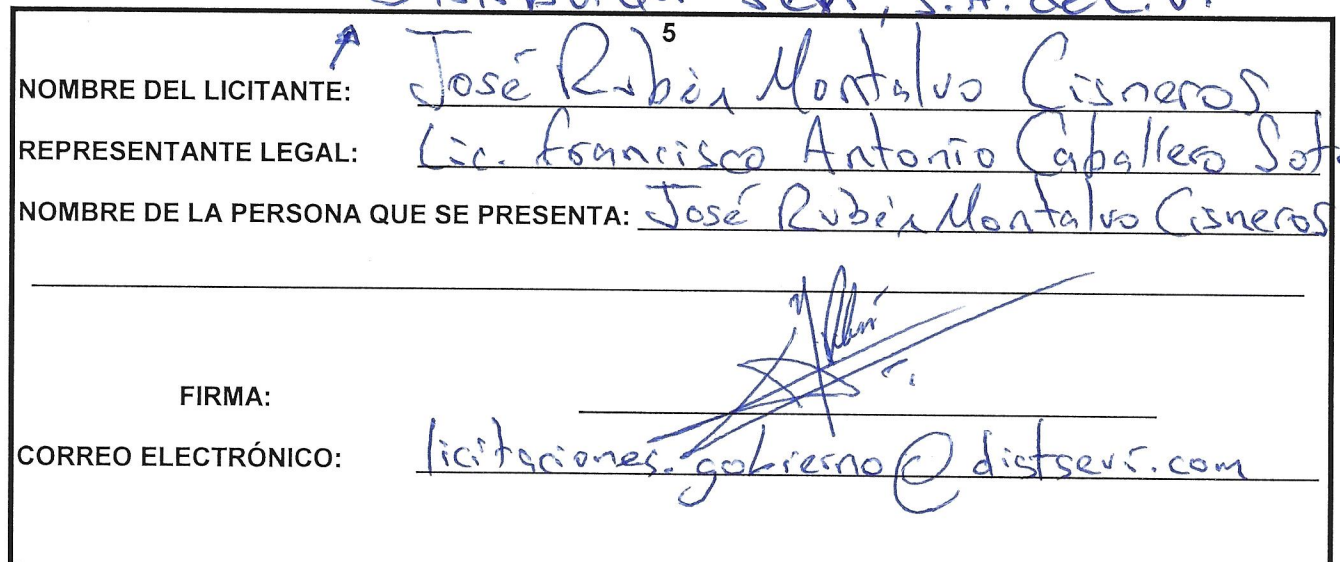 S.A. de C.V.
5
NOMBRE DEL LICITANTE: José Rubén Montalvo Cisneros
REPRESENTANTE LEGAL: Lic. Francisco Antonio Caballero
NOMBRE DE LA PERSONA QUE SE PRESENTA: José Rubén Montalvo Cisneros
FIRMA:
CORREO ELECTRÓNICO: licitaciones.gobierno@distsevi.com